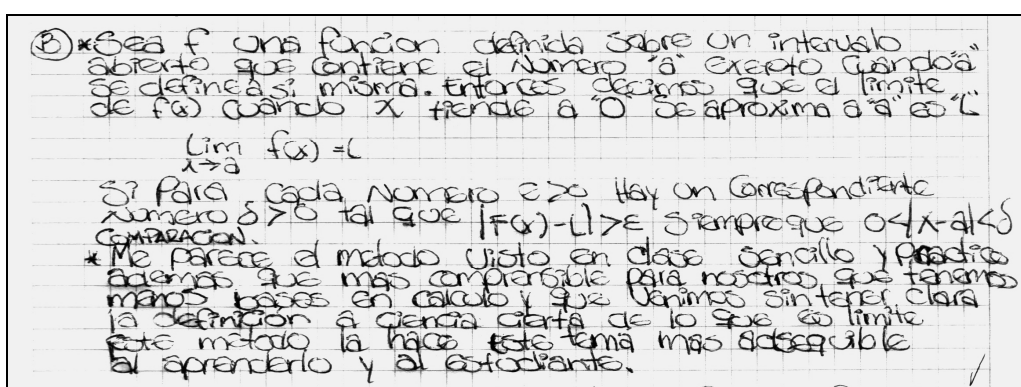 ③ *Sea f una funcion definida sobre un intervalo
abierto que contiene el numero "a" exepto cuando "a"
se define a si misma. Entonces decimos que el limite
de f(x) cuando x tiende a "0" se aproxima a "a" es "L"
Lim f(x) = L
x→a
Si Para cada Numero ε>0 Hay un Correspondiente
Numero δ>0 tal que |F(x)-L|>ε siempre que 0<|x-a|<δ
COMPARACION.
* Me parece el metodo visto en clase sencillo y practico
ademas que mas comprensible para nosotros que tenemos
menos bases en calculo y que venimos sin tener clara
la definición a ciencia cierta de lo que es limite
este metodo la hace este tema mas adsequible
al aprenderlo y al estudiante.